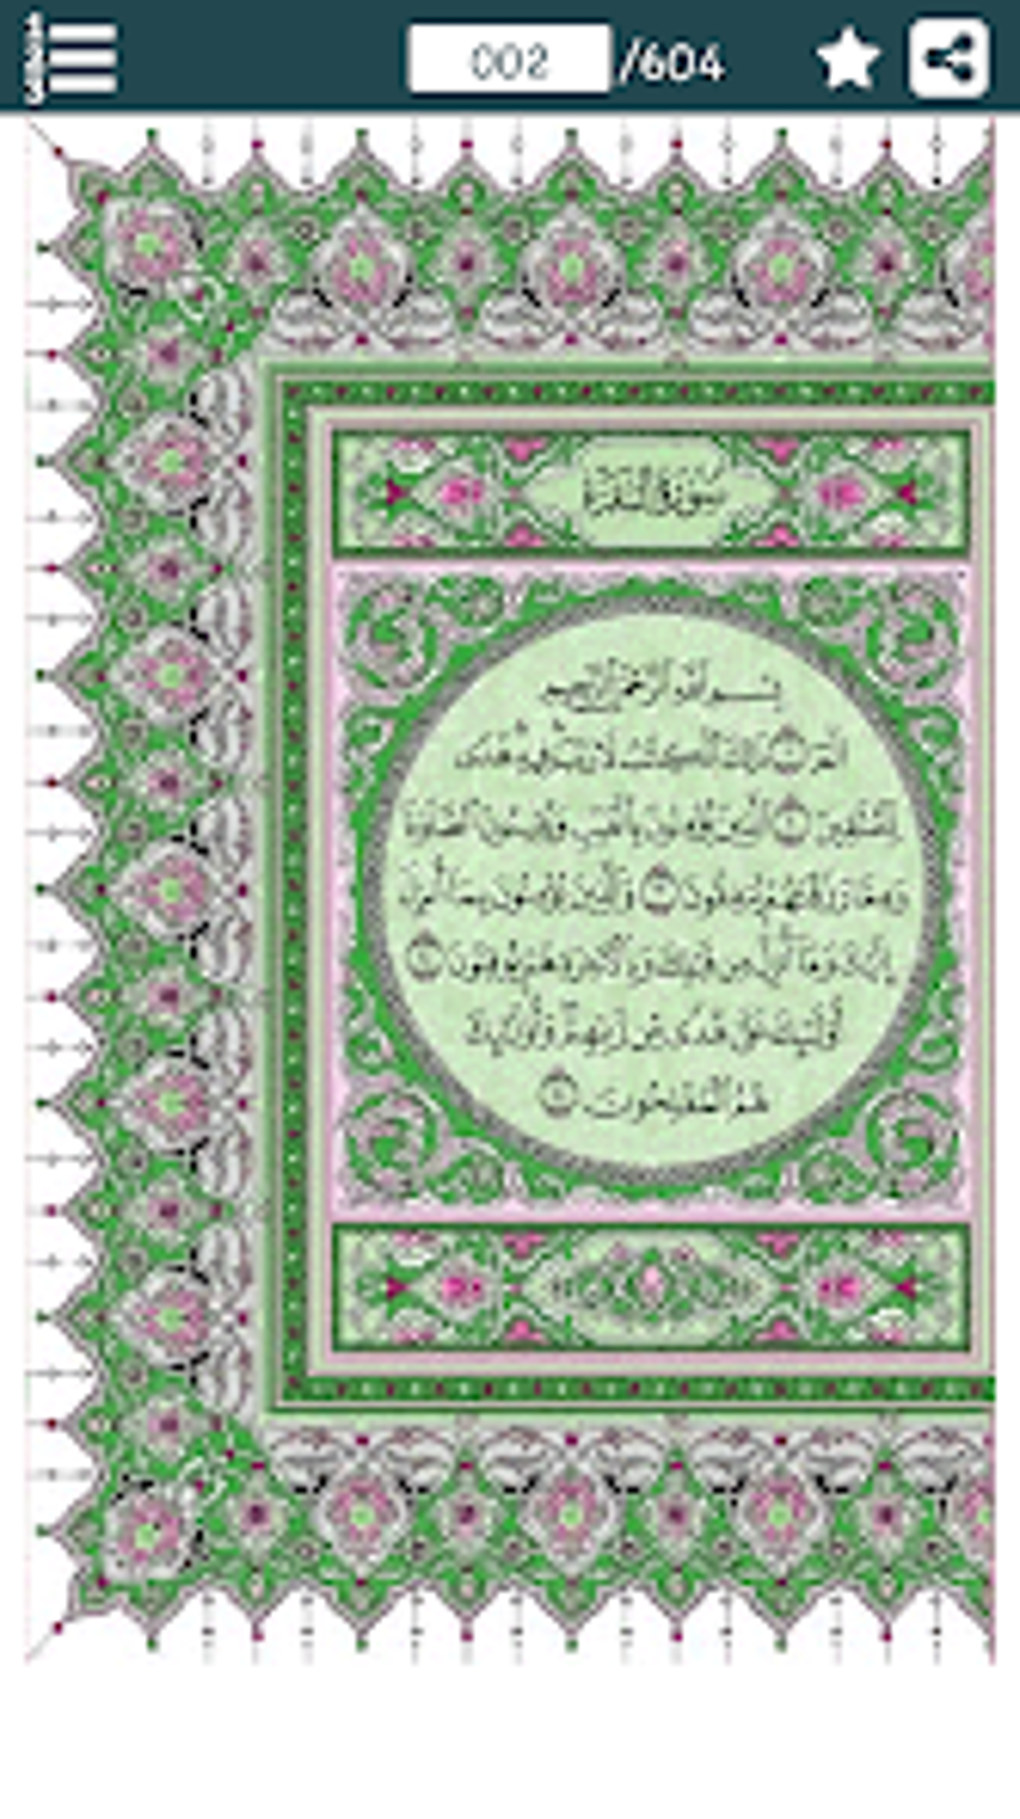 002 /604
سورة البقرة
بسم الله الرحمن الرحيم
الم ١ ذلك الكتب لا ريب فيه هدى
للمتقين ٢ الذين يؤمنون بالغيب ويقيمون الصلوة
ومما رزقنهم ينفقون ٣ والذين يؤمنون بما أنزل
إليك وما أنزل من قبلك وبالآخرة هم يوقنون ٤
أولئك على هدى من ربهم وأولئك
هم المفلحون ٥